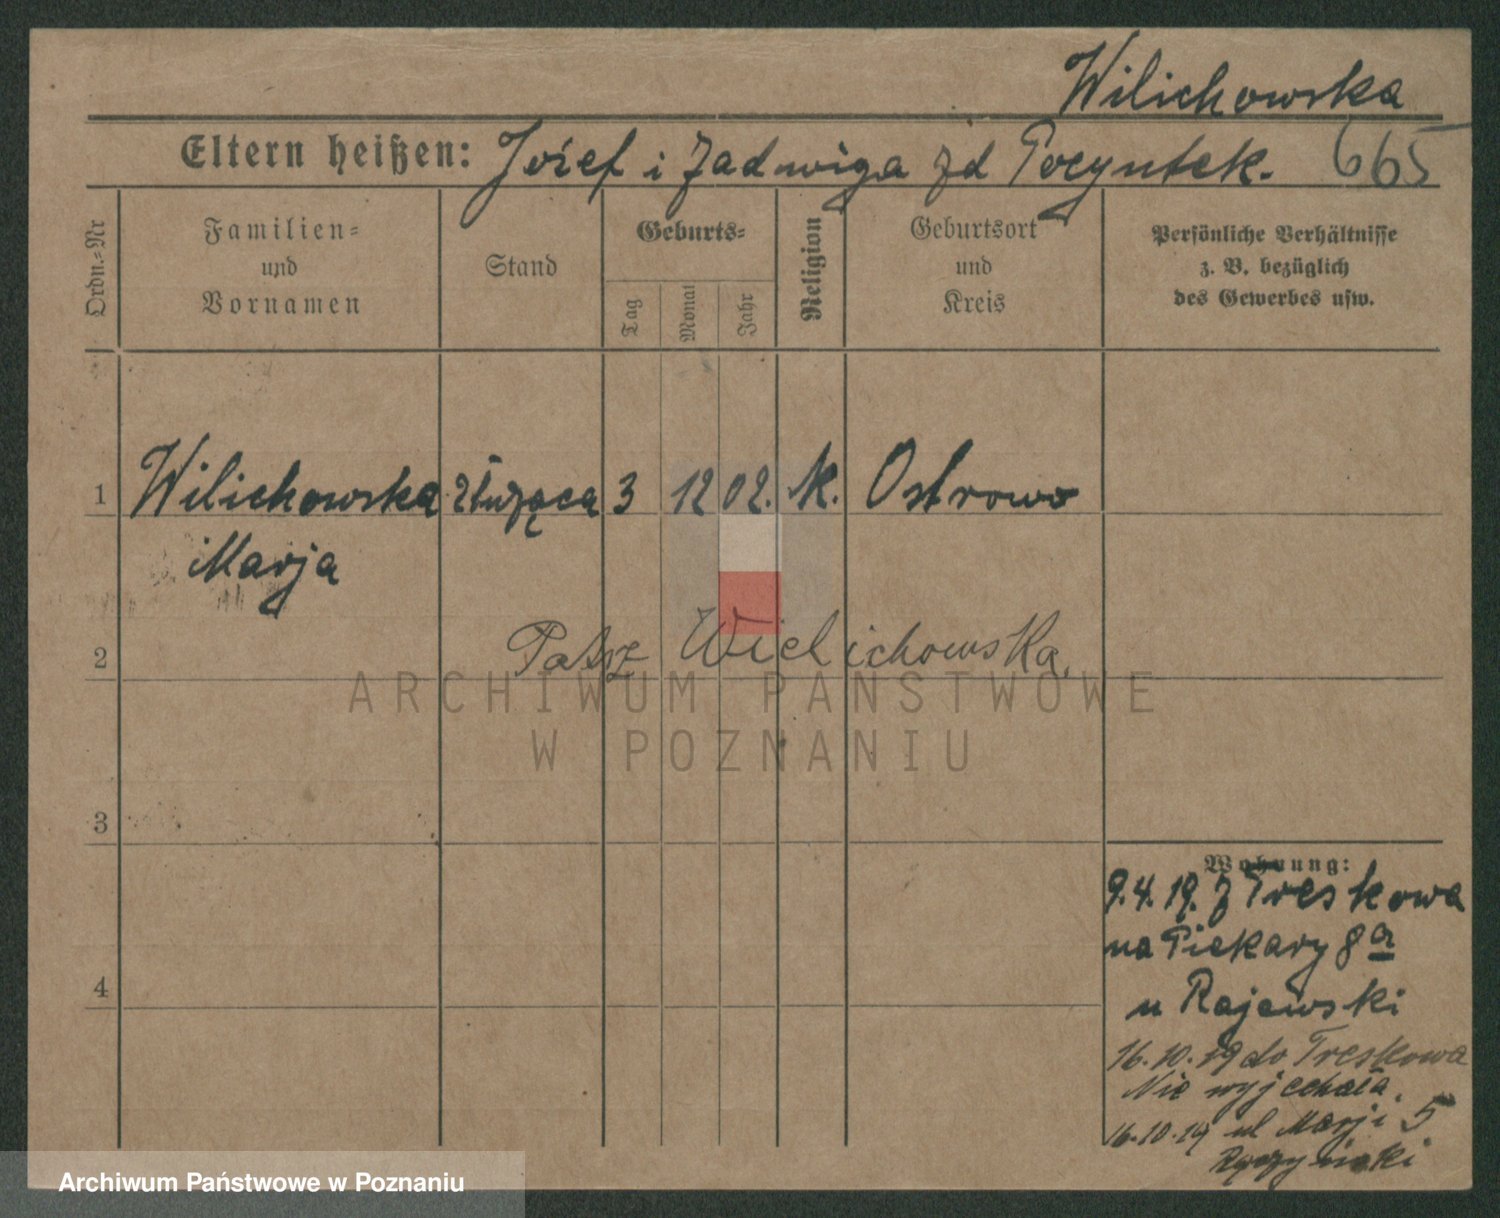 Wilichowska
Eltern heißen: Józef i Jadwiga zd Pocyntek. 665
Ordn.-Nr
Familien-
und
Vornamen
Stand
Geburts-
Tag
Monat
Jahr
Religion
Geburtsort
und
Kreis
Persönliche Verhältnisse
z. B. bezüglich
des Gewerbes usw.
1 Wilichowska służąca 3 12 02. k. Ostrowo
Marja
2 Patrz Wielichowska.
ARCHIWUM PAŃSTWOWE
W POZNANIU
3
4
Wohnung:
9.4.19. z Treskowa
na Piekary 8a
u Rajewski
16.10.19 do Treskowa
Nie wyjechała.
16.10.19 ul Marji 5
Archiwum Państwowe w Poznaniu